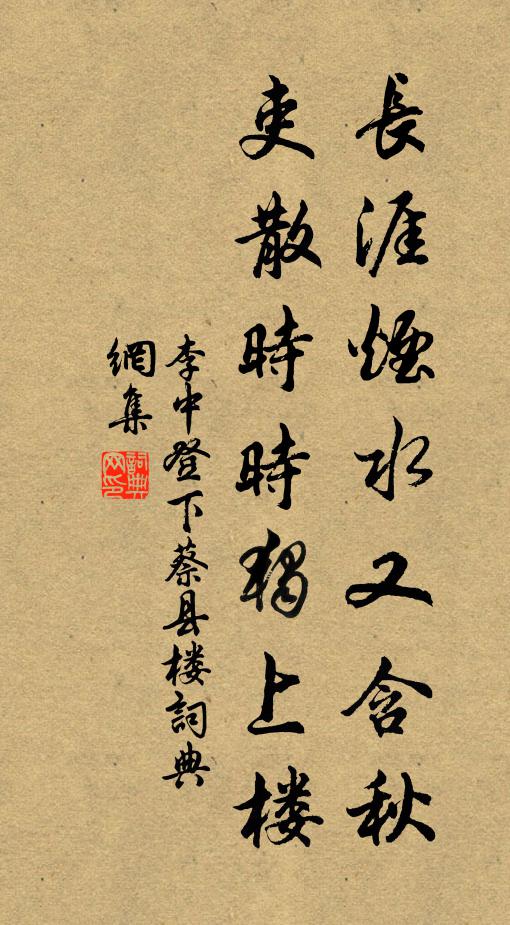 長涯煙水又含秋
吏散時時獨上楼
李中登下蔡县楼詞典
網集
詞典网印